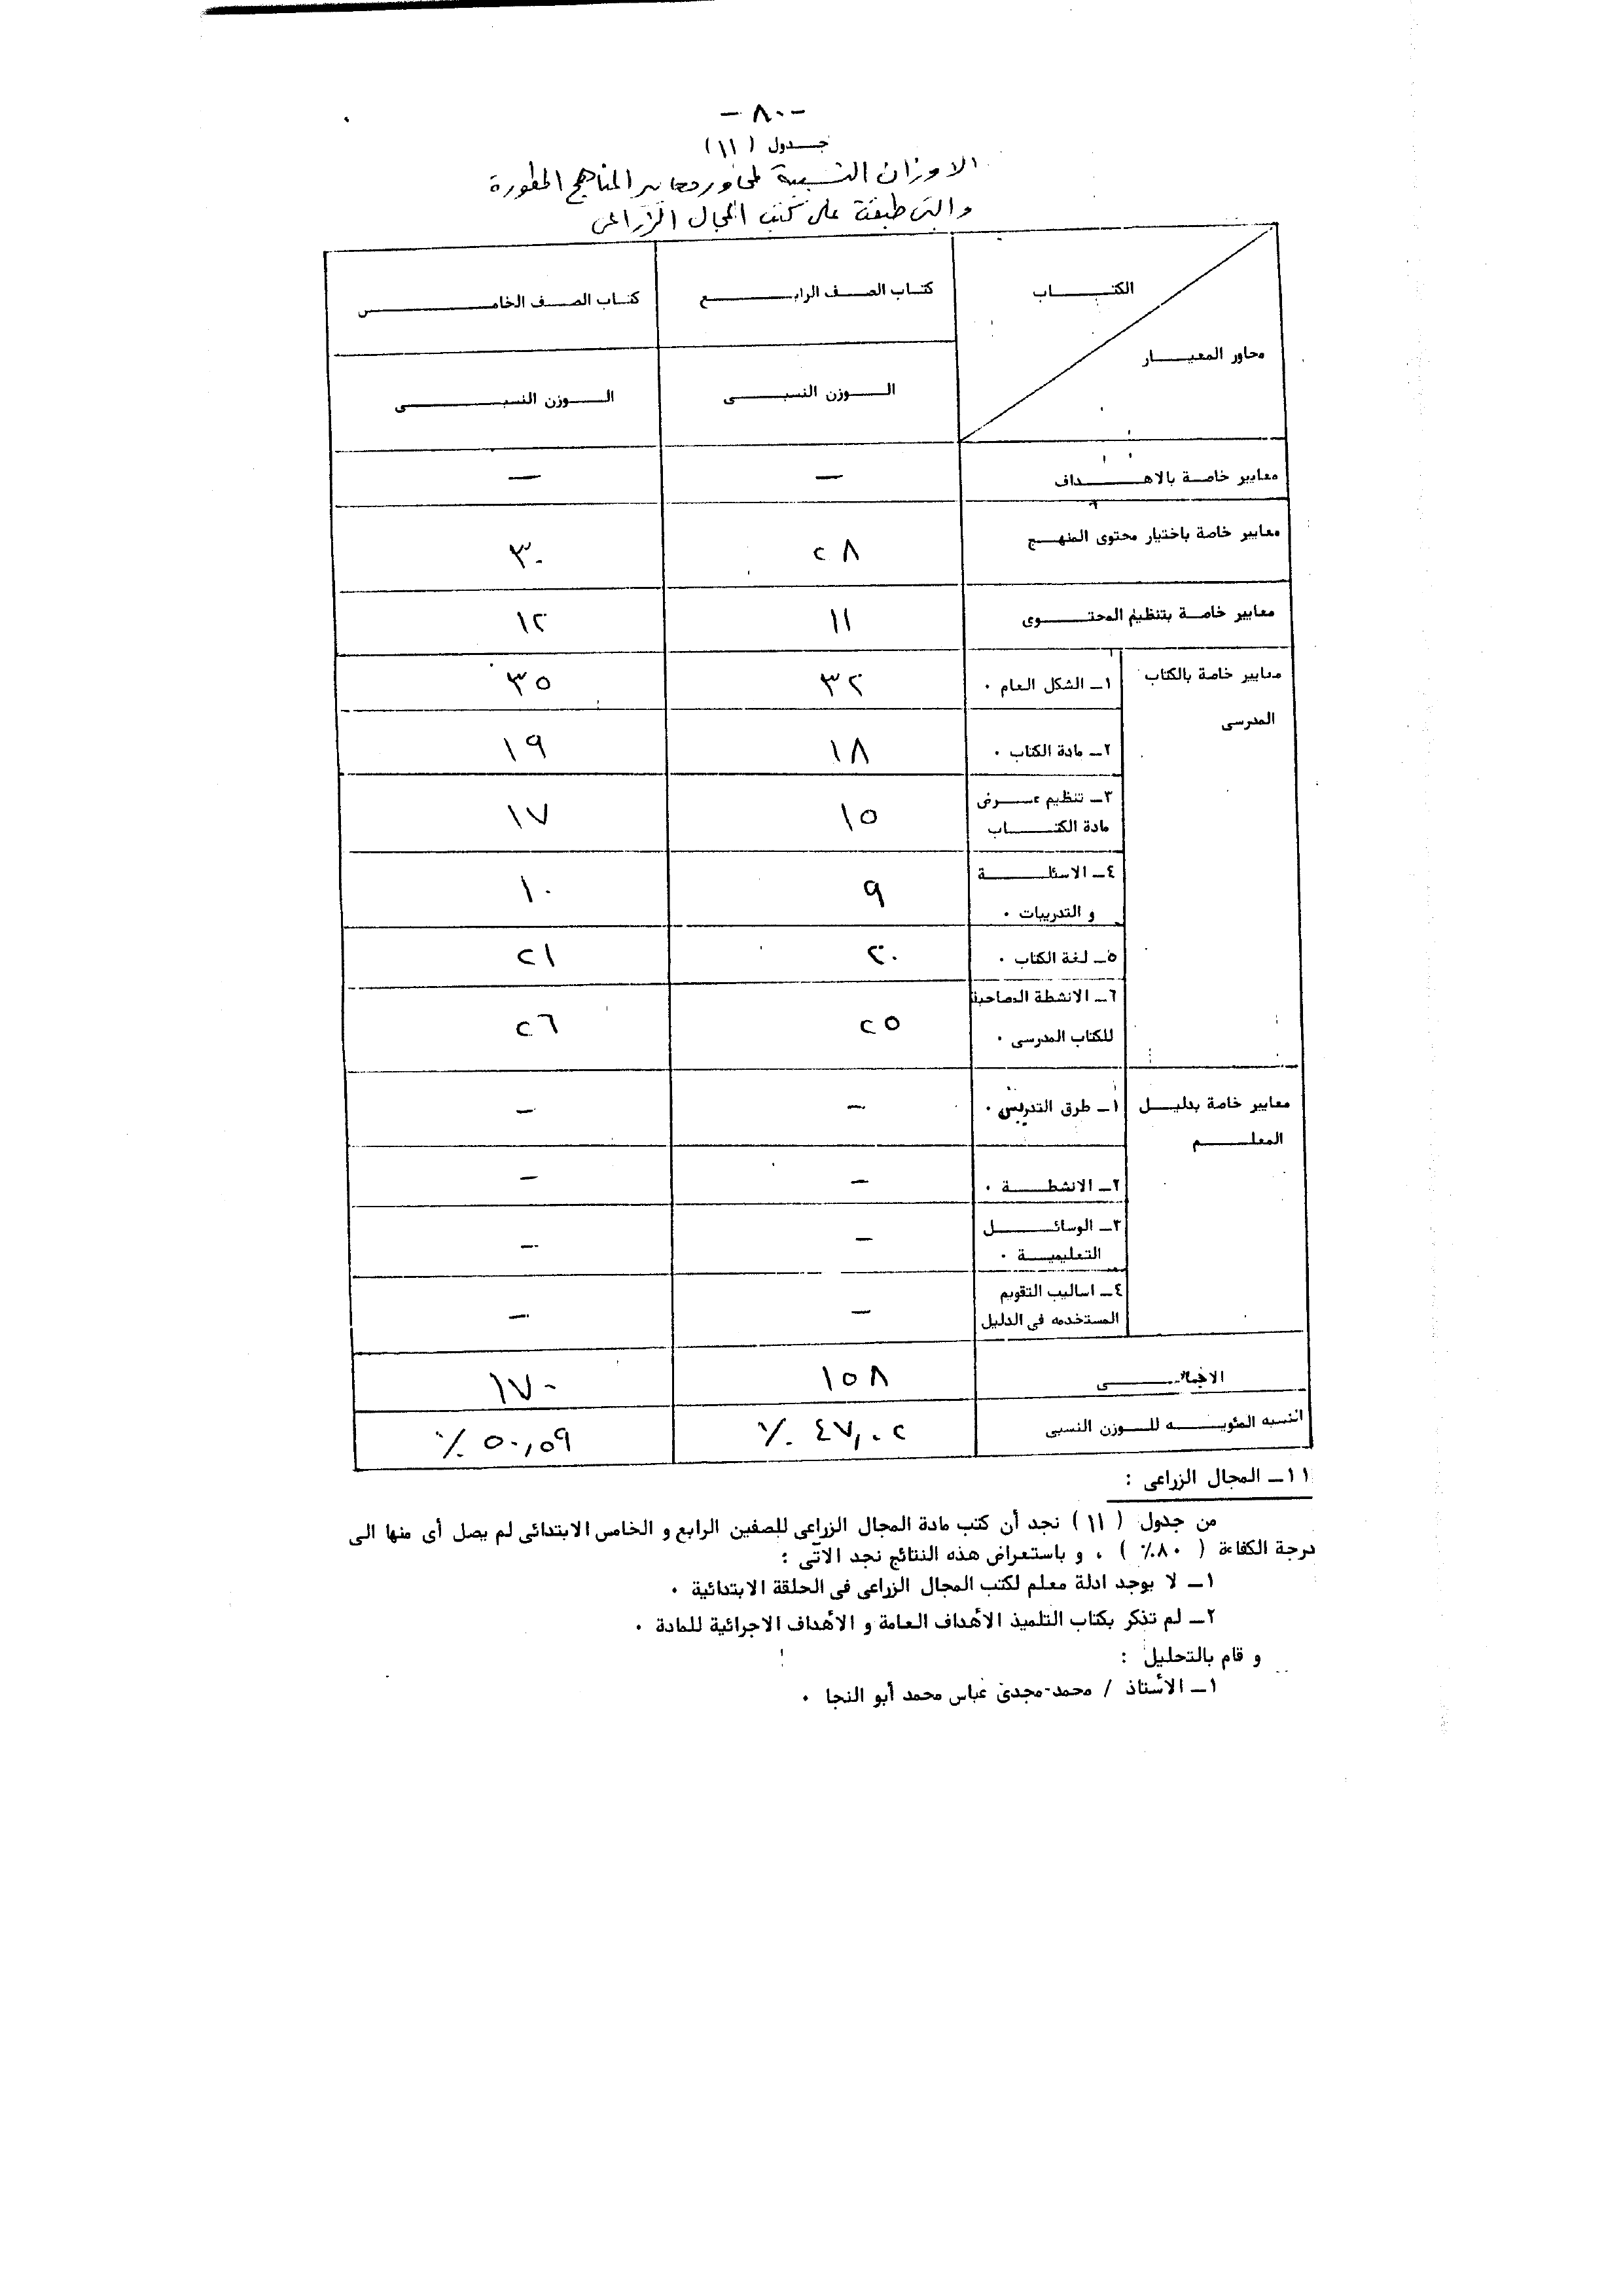 - ٨٠ -
جدول (١١)
الاوزان النسبية لمحاور معايير المناهج المطورة
والتى طبقت على كتب المجال الزراعى
الكتاب
محاور المعيار
كتاب الصف الرابع
كتاب الصف الخامس
الوزن النسبى
الوزن النسبى
معايير خاصة بالاهداف — —
معايير خاصة باختيار محتوى المنهج ٢٨ ٣٠
معايير خاصة بتنظيم المحتوى ١١ ١٢
معايير خاصة بالكتاب
المدرسى
١- الشكل العام . ٣٢ ٣٥
٢- مادة الكتاب . ١٨ ١٩
٣- تنظيم عرض
مادة الكتاب ١٥ ١٧
٤- الاسئلة
و التدريبات . ٩ ١٠
٥- لغة الكتاب . ٢٠ ٢١
٦- الانشطة المصاحبة
للكتاب المدرسى . ٢٥ ٢٦
معايير خاصة بدليل
المعلم
١- طرق التدريس . — —
٢- الانشطة . — —
٣- الوسائل
التعليمية . — —
٤- اساليب التقويم
المستخدمه فى الدليل — —
الاجمالى ١٥٨ ١٧٠
النسبه المئويه للوزن النسبى ٤٧,٠٢ ٪ ٥٠,٥٩ ٪
١١- المجال الزراعى :
من جدول ( ١١ ) نجد أن كتب مادة المجال الزراعى للصفين الرابع و الخامس الابتدائى لم يصل أى منها الى
درجة الكفاءة ( ٨٠٪ ) ، و باستعراض هذه النتائج نجد الآتى :
١- لا يوجد ادلة معلم لكتب المجال الزراعى فى الحلقة الابتدائية .
٢- لم تذكر بكتاب التلميذ الأهداف العامة و الأهداف الاجرائية للمادة .
و قام بالتحليل :
١- الأستاذ / محمد مجدى عباس محمد أبو النجا .